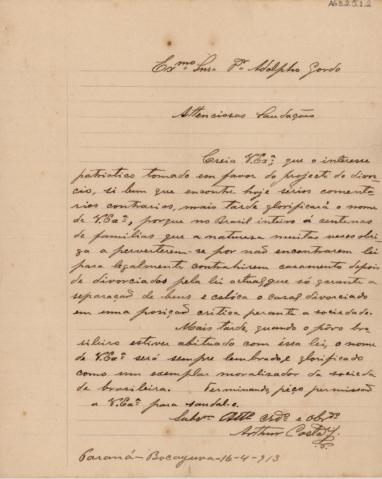 AG 32.5.1.2
Exmo Snr. Dr. Adolpho Gordo
Attenciosas Saudações
Creia V.Exa, que o interesse
patriotico tomado em favor do projecto do divor-
cio, si bem que encontre hoje sérios comenta-
rios contrarios, mais tarde glorificará o nome
de V.Exa, porque no Brasil inteiro á sentenas
de familias que a natureza muitas veses obri-
ga a perverterem-se por não encontrarem lei
para legalmente contrahirem casamento depois
de divorciados pela lei actual que só garante a
separação de bens e colóca o casal divorciado
em uma posição critica perante a sociedade.
Mais tarde, quando o pôvo bra-
sileiro estiver abituado com éssa lei, o nome
de V.Exa será sempre lembrado, e glorificado
como um exemplar moralizador da socieda
de brasileira. Terminando, peço permissão
a V.Exa para saudal-o.
Atto Crdo e Obrdo
Arthur Costa
Paraná-Bocayuva-16-4-913